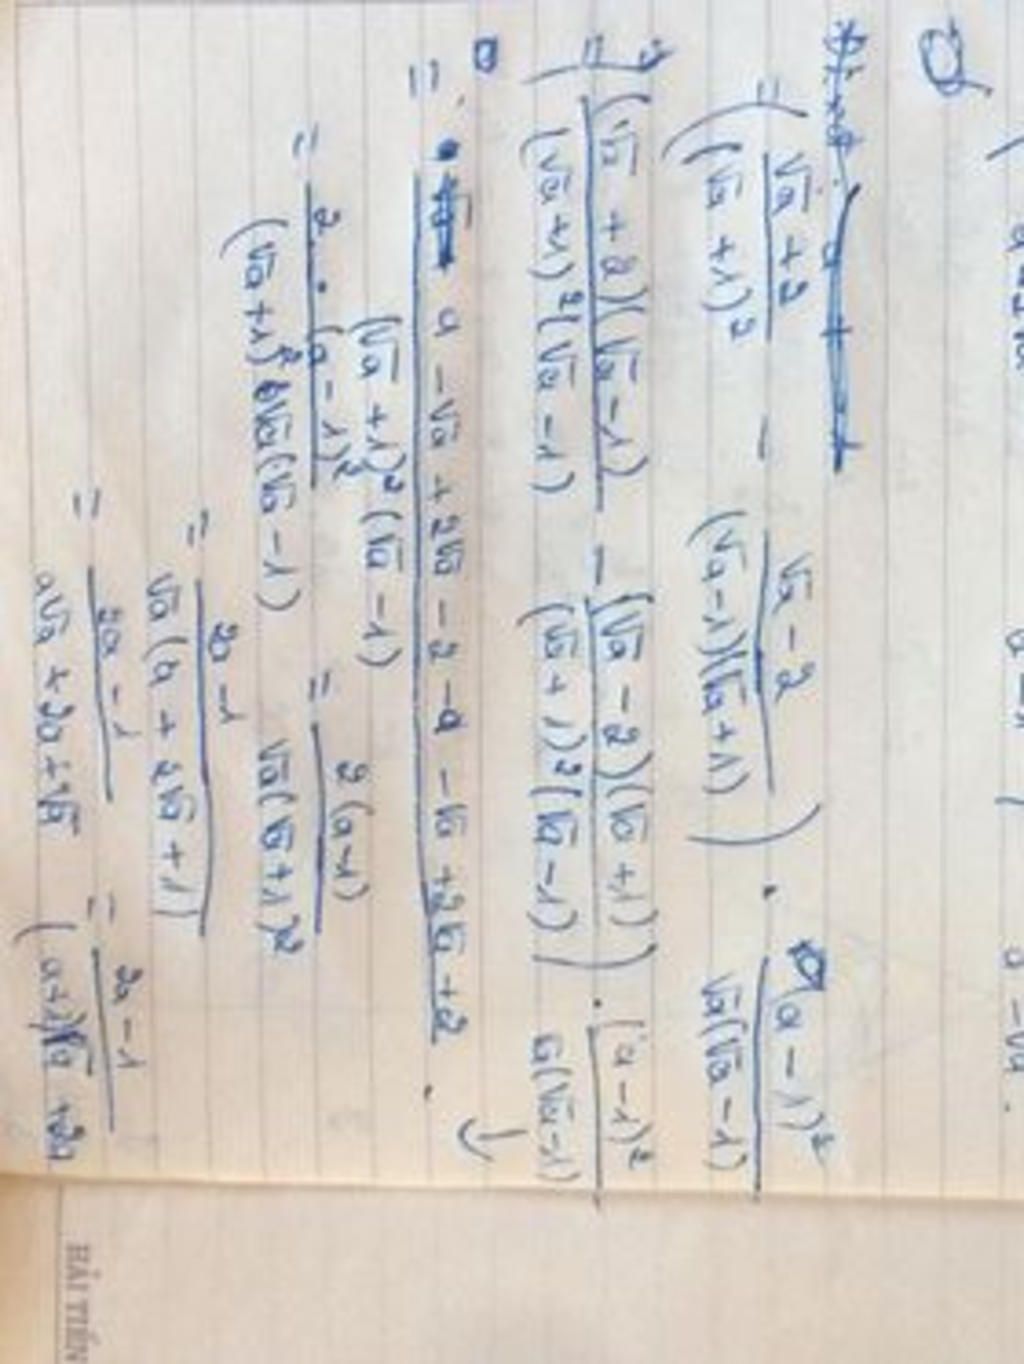 = ( (√a + 2)/(√a + 1)² − (√a − 2)/((√a − 1)(√a + 1)) ) . (a − 1)²/(√a(√a − 1))
= ( (√a + 2)(√a − 1)/((√a + 1)²(√a − 1)) − (√a − 2)(√a + 1)/((√a + 1)²(√a − 1)) ) . (a − 1)²/(√a(√a − 1))
= (a − √a + 2√a − 2 − a − √a + 2√a + 2)/((√a + 1)²(√a − 1)) .
= 2 . (a − 1)²/((√a + 1)² √a(√a − 1)) = 2(a − 1)/(√a(√a + 1)²)
= (2a − 1)/(√a(a + 2√a + 1))
= (2a − 1)/(a√a + 2a + √a) = (2a − 1)/
HẢI TIẾN